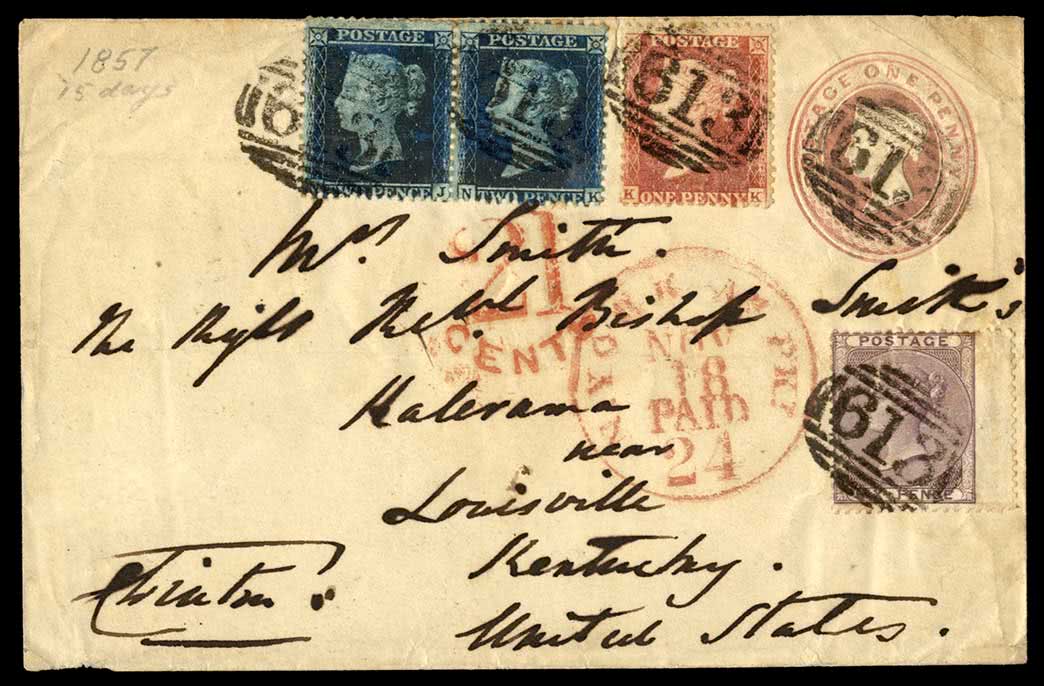 1857
15 days
POSTAGE
TWO PENCE J
POSTAGE
N TWO PENCE K
POSTAGE
K ONE PENNY K
POSTAGE ONE PENNY
613
613
613
Mrs. Smith.
The Right Revd. Bishop Smith's
Kalorama
near
Louisville
Kentucky.
United States.
21
CENTS
N. YORK AM. PKT
NOV
18
PAID
24
POSTAGE
SIX PENCE
613